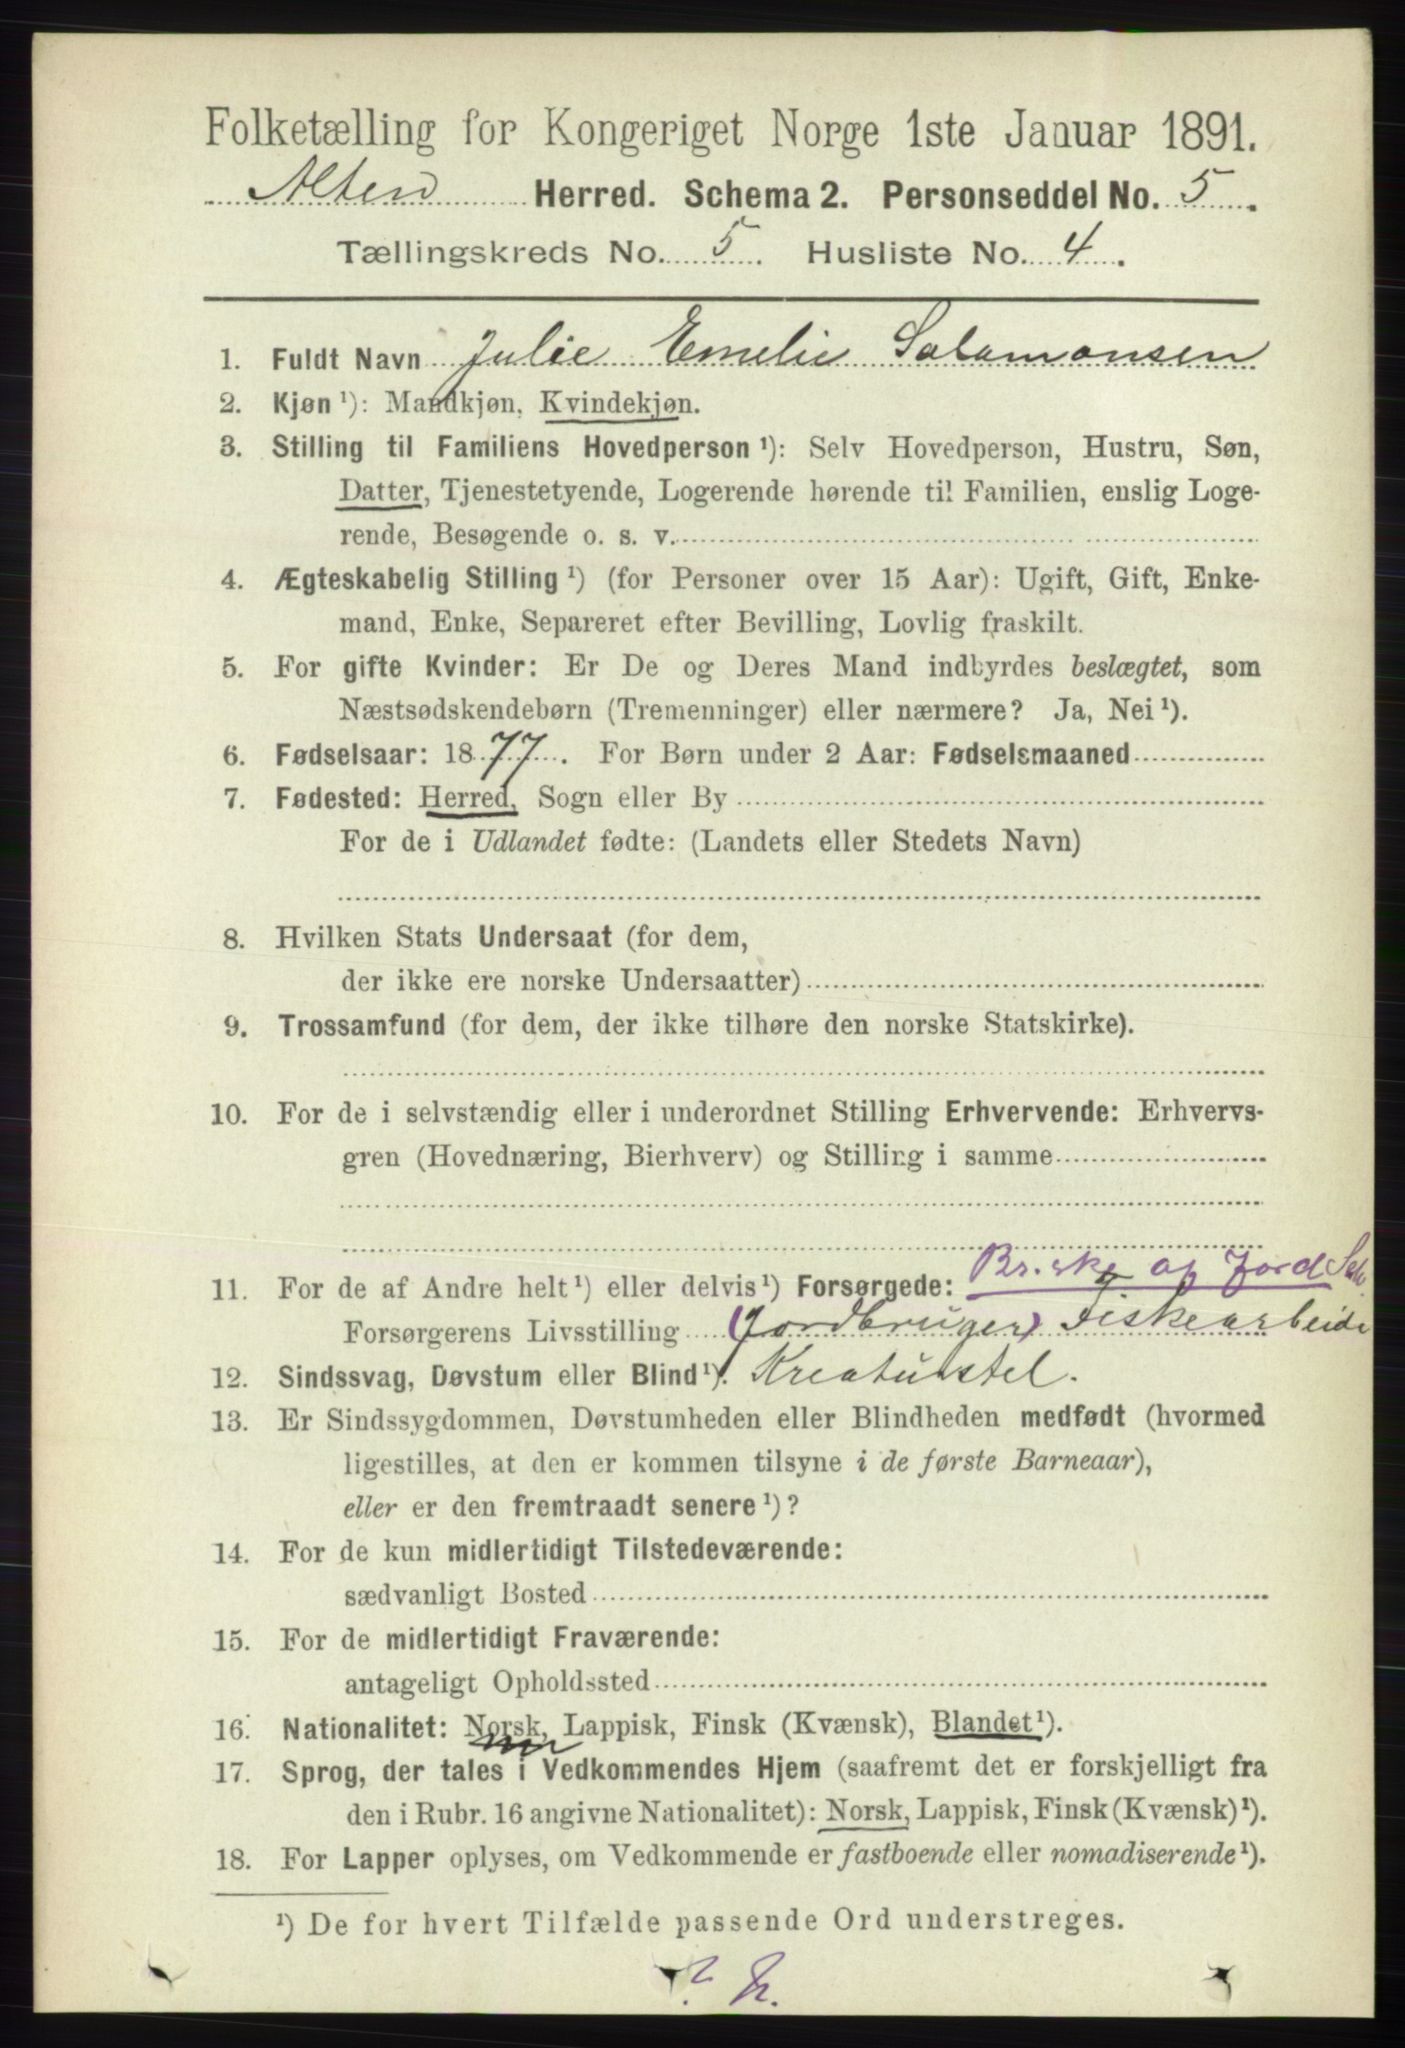 Folketælling for Kongeriget Norge 1ste Januar 1891.
Alten Herred. Schema 2. Personseddel No. 5.
Tællingskreds No. 5. Husliste No. 4.
1. Fuldt Navn Julie Emelie Salamonsen
2. Kjøn ¹): Mandkjøn, Kvindekjøn.
3. Stilling til Familiens Hovedperson ¹): Selv Hovedperson, Hustru, Søn,
Datter, Tjenestetyende, Logerende hørende til Familien, enslig Loge-
rende, Besøgende o. s. v.
4. Ægteskabelig Stilling ¹) (for Personer over 15 Aar): Ugift, Gift, Enke-
mand, Enke, Separeret efter Bevilling, Lovlig fraskilt.
5. For gifte Kvinder: Er De og Deres Mand indbyrdes beslægtet, som
Næstsødskendebørn (Tremenninger) eller nærmere? Ja, Nei ¹).
6. Fødselsaar: 1877. For Børn under 2 Aar: Fødselsmaaned
7. Fødested: Herred, Sogn eller By
For de i Udlandet fødte: (Landets eller Stedets Navn)
8. Hvilken Stats Undersaat (for dem,
der ikke ere norske Undersaatter)
9. Trossamfund (for dem, der ikke tilhøre den norske Statskirke).
10. For de i selvstændig eller i underordnet Stilling Erhvervende: Erhvervs-
gren (Hovednæring, Bierhverv) og Stilling i samme
11. For de af Andre helt ¹) eller delvis ¹) Forsørgede: og Jord
Forsørgerens Livsstilling (Jordbruger) Fiskearbeide
12. Sindssvag, Døvstum eller Blind ¹). Kreaturstel.
13. Er Sindssygdommen, Døvstumheden eller Blindheden medfødt (hvormed
ligestilles, at den er kommen tilsyne i de første Barneaar),
eller er den fremtraadt senere ¹)?
14. For de kun midlertidigt Tilstedeværende:
sædvanligt Bosted
15. For de midlertidigt Fraværende:
antageligt Opholdssted
16. Nationalitet: Norsk, Lappisk, Finsk (Kvænsk), Blandet ¹).
17. Sprog, der tales i Vedkommendes Hjem (saafremt det er forskjelligt fra
den i Rubr. 16 angivne Nationalitet): Norsk, Lappisk, Finsk (Kvænsk) ¹).
18. For Lapper oplyses, om Vedkommende er fastboende eller nomadiserende ¹).
¹) De for hvert Tilfælde passende Ord understreges.